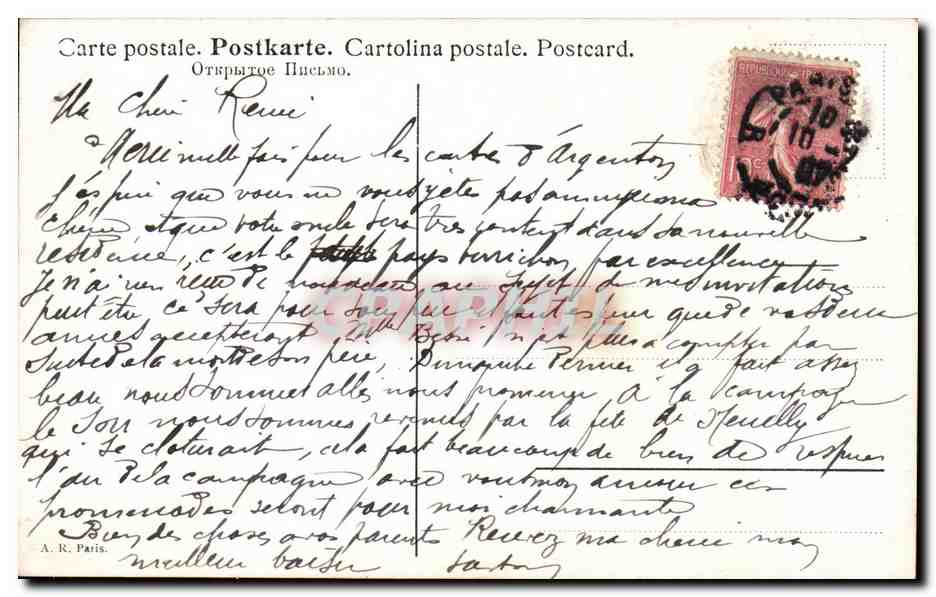 Carte postale. Postkarte. Cartolina postale. Postcard.
Открытое Письмо.
REPUBLIQUE
PARIS
10
10
10c
Ma chère
mille fois pour les cartes d'Argenton
J'espère que vous ne vous pas
chérie et que votre oncle sera très content dans sa nouvelle
résidence, c'est le pays berrichon par excellence
Je n'ai rien de nouveau au sujet de mes invitations
peut être ce sera pour que de vos deux
amies accepteront Mlle n'est pas à compter par
suite de la mort de son père, Dimanche dernier il a fait assez
beau nous sommes allés nous promener à la campagne
le soir nous sommes revenus par la fête de Neuilly
qui se cloturait, cela fait beaucoup de bien de respirer
l'air de la campagne avec vous mon amour ces
promenades seront pour moi charmantes
Bien des choses à vos parents Recevez ma chérie mon
meilleur baiser
A. R. Paris.
CPAPHIL